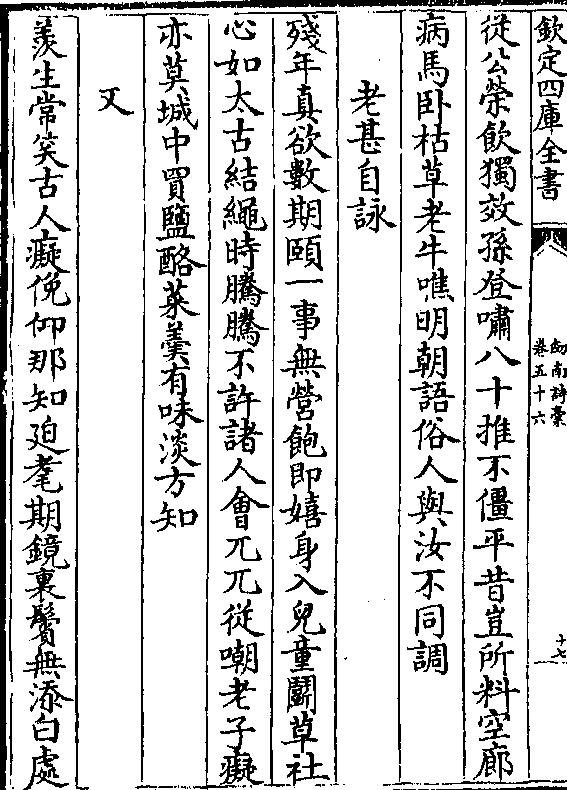 欽定四庫全書
劍南詩稾
卷五十六
十七
從公榮飲獨效孫登嘯八十推不僵平昔豈所料空廊
病馬卧枯草老牛噍明朝語俗人與汝不同調
老甚自詠
殘年真欲數期頤一事無營飽即嬉身入兒童鬭草社
心如太古結繩時騰騰不許諸人會兀兀從嘲老子癡
亦莫城中買鹽酪菜羹有味淡方知
又
羨生常笑古人癡俛仰那知迫耄期鏡裏鬢無添白處